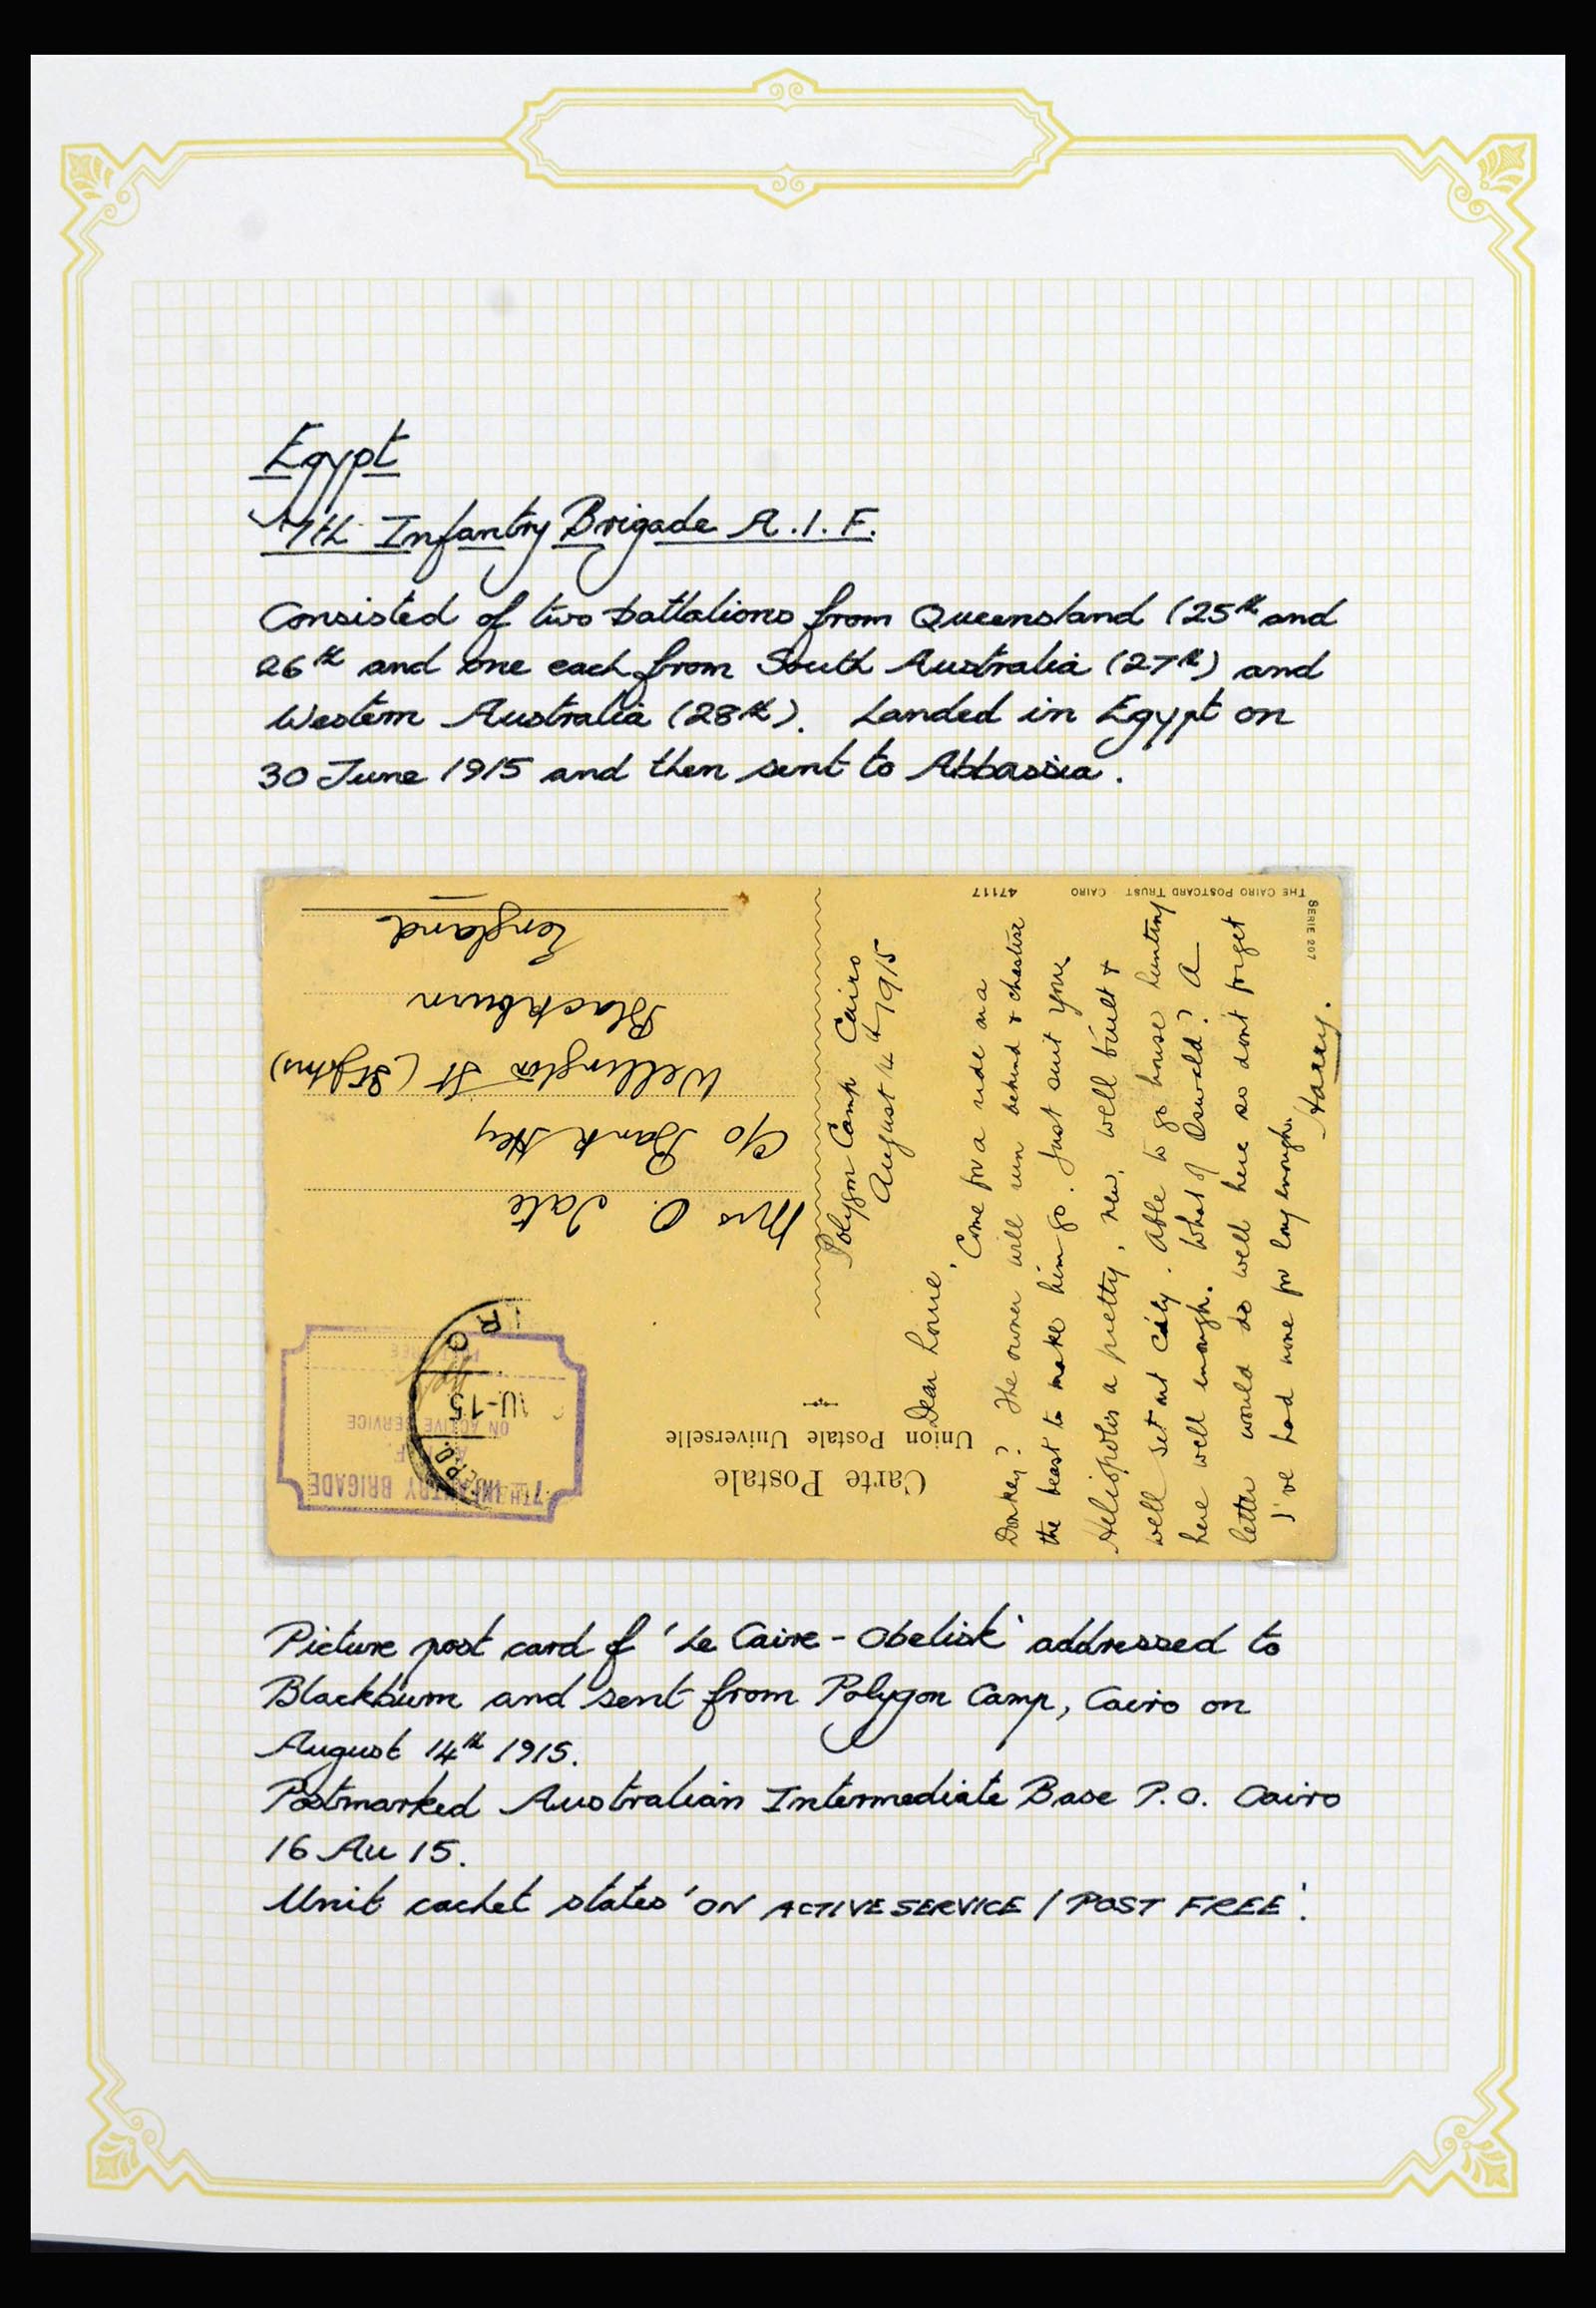 Egypt
7th Infantry Brigade A.I.F.
Consisted of two battalions from Queensland (25th and
26th and one each from South Australia (27th) and
Western Australia (28th). Landed in Egypt on
30 June 1915 and then sent to Abbassia.
Carte Postale
Union Postale Universelle
7TH INFANTRY BRIGADE
ON ACTIVE SERVICE
POST FREE
U-15
Mrs O. Tate
c/o Bank Hey
Wellington St (St Johns)
Blackburn
England
Polygon Camp Cairo
August 14th 1915
Dear Lonie,
Come for a ride on a
Donkey? The owner will run behind & chastise
the beast to make him go. Just suit you
Heliopolis a pretty, new, well built &
well set out City. Able to go house hunting
here well enough. What of Oswald? A
letter would do well here so dont forget
I've had none for long enough.
Harry.
THE CAIRO POSTCARD TRUST CAIRO 47117
SERIE 207
Picture post card of 'Le Caire - Obelisk' addressed to
Blackburn and sent from Polygon Camp, Cairo on
August 14th 1915.
Postmarked Australian Intermediate Base P.O. Cairo
16 Au 15.
Unit cachet states 'ON ACTIVE SERVICE / POST FREE'.